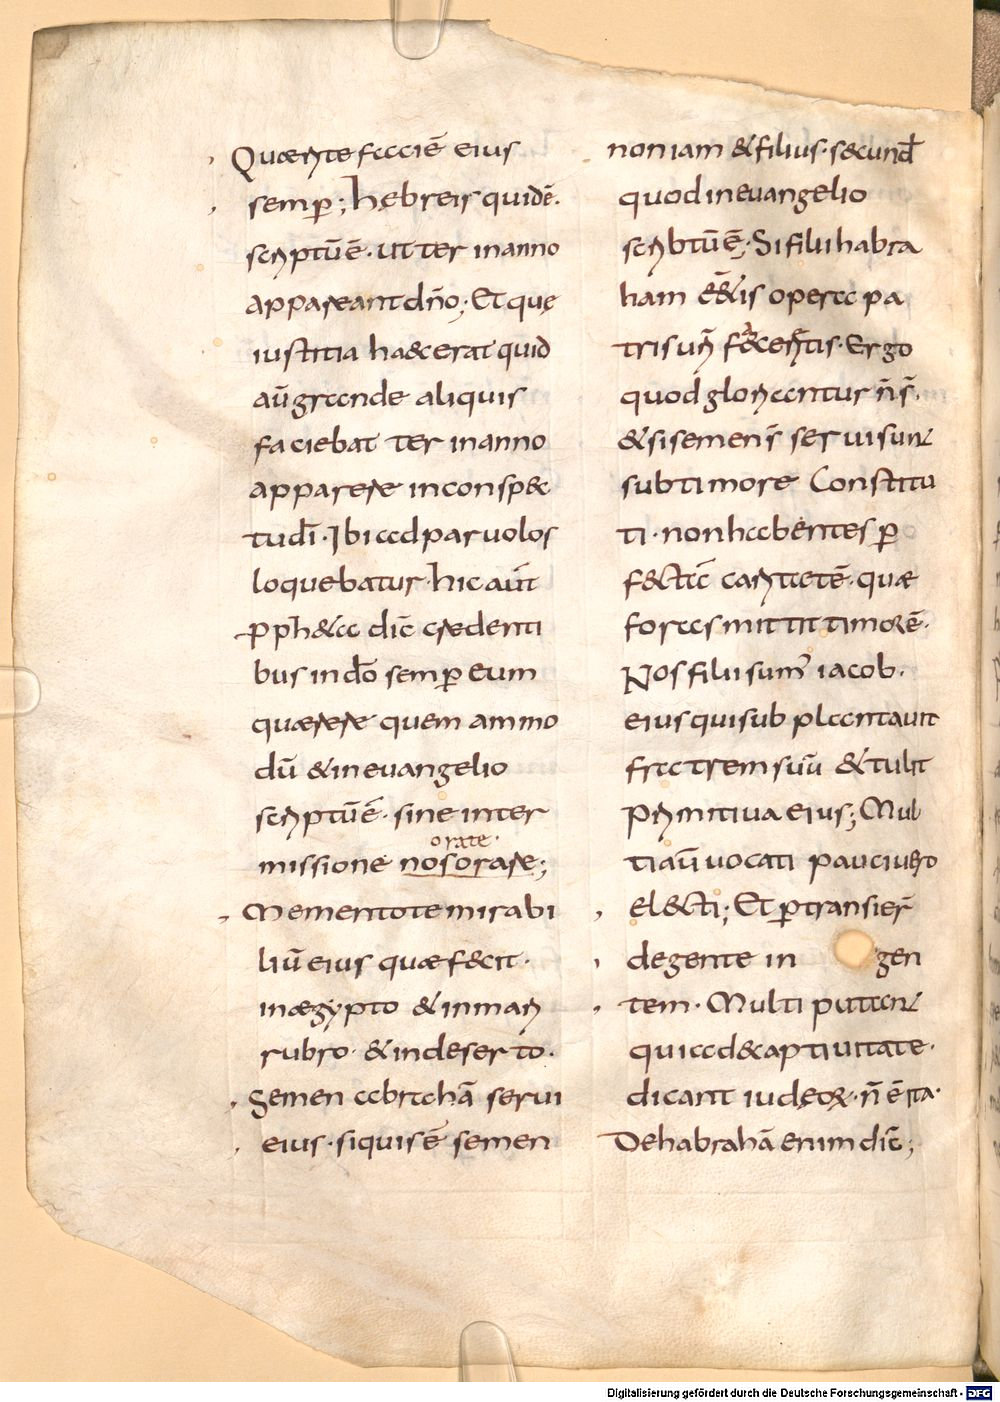 Quærite faciē eius
semꝑ; hebreis quidē·
scriptū ē· ut ter in anno
appareant dn̄o; Et quę
iustitia haec erat quid
aū grande aliquis
faciebat ter in anno
apparere in conspec
tu dī· Ibi ad paruolos
loquebatur· hic aūt
ppħeta dic̄ credenti
bus in dō semꝑ eum
quærere quem ammo
dū & in euangelio
scriptū ē· sine inter
orate·
missione nos orare;
Mementote mirabi
liū eius quæ fecit·
in ægypto & in mari
rubro· & in deserto·
Semen abrahā serui
eius· si quis ē semen
non iam & filius· secund̄
quod in euangelio
scribtū ē; Si filii habra
ham eētis opera pa
tris ur̄i faceretis· Ergo
quod gloriantur nr̄s̄·
& si semen s̄ serui sunt
sub timore Constitu
ti· non habentes ꝑ
fectā caritatē· quæ
foras mittit timorē·
Nos filii sum̄ iacob·
eius qui subplantauit
fratrem suū & tulit
primitiua eius; Mul
ti aū uocati pauci uero
electi; Et ꝑtransier̄
de gente in gen
tem· Multi putant
qui ad captiuitate·
dicant iudęoꝝ· n̄ ē ita·
De habrahā enim dic̄;
Digitalisierung gefördert durch die Deutsche Forschungsgemeinschaft - DFG